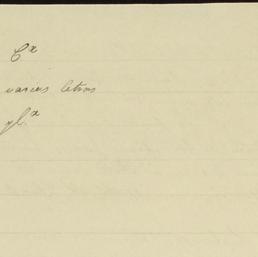 C.x
varias letras
pl.x